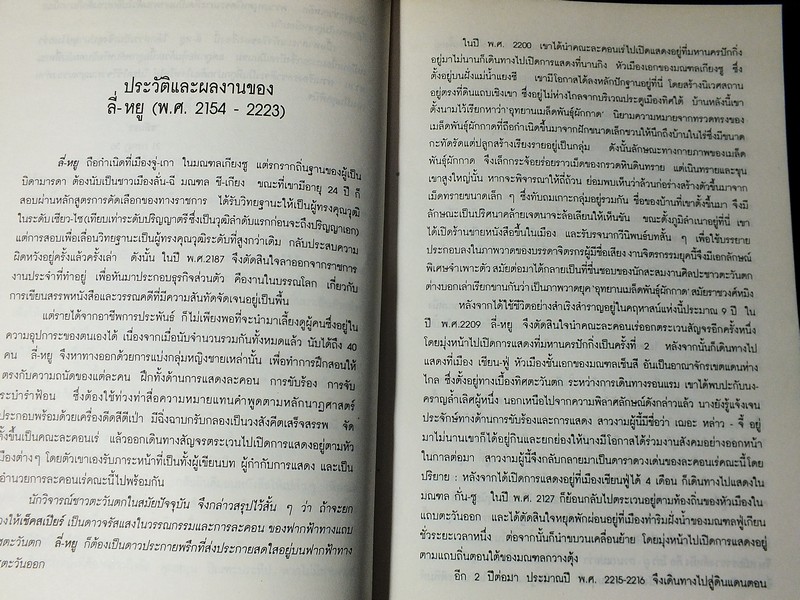 ประวัติและผลงานของ
ลี่-หยู (พ.ศ. 2154 - 2223)
ลี่-หยู ถือกำเนิดที่เมืองจู่-เกา ในมณฑลเกียงซู แต่รกรากถิ่นฐานของผู้เป็น
บิดามารดา ต้องนับเป็นชาวเมืองลั่น-ฉี มณฑล ชี-เกียง ขณะที่เขามีอายุ 24 ปี ก็
สอบผ่านหลักสูตรการคัดเลือกของทางราชการ ได้รับวิทยฐานะให้เป็นผู้ทรงคุณวุฒิ
ในระดับเซียว-ไซ (เทียบเท่าระดับปริญญาตรีซึ่งเป็นวุฒิลำดับแรกก่อนจะถึงปริญญาเอก)
แต่การสอบเพื่อเลื่อนวิทยฐานะเป็นผู้ทรงคุณวุฒิระดับที่สูงกว่าเดิม กลับประสบความ
ผิดหวังอยู่ครั้งแล้วครั้งเล่า ดังนั้น ในปี พ.ศ.2187 จึงตัดสินใจลาออกจากราชการ
งานประจำที่ทำอยู่ เพื่อหันมาประกอบธุรกิจส่วนตัว คืองานในบรรณโลก เกี่ยวกับ
การเขียนสรรพหนังสือและวรรณคดีที่มีความสันทัดจัดเจนอยู่เป็นพื้น
แต่รายได้จากอาชีพการประพันธ์ ก็ไม่เพียงพอที่จะนำมาเลี้ยงดูผู้คนซึ่งอยู่ใน
ความอุปการะของตนเองได้ เนื่องจากเมื่อนับจำนวนรวมกันทั้งหมดแล้ว นับได้ถึง 40
คน ลี่-หยู จึงหาทางออกด้วยการแบ่งกลุ่มหญิงชายเหล่านั้น เพื่อทำการฝึกสอนให้
ตรงกับความถนัดของแต่ละคน ฝึกทั้งด้านการแสดงละคอน การขับร้อง การจับ
ระบำรำฟ้อน ซึ่งต้องใช้ท่วงท่าสื่อความหมายแทนคำพูดตามหลักนาฏศาสตร์
ประกอบพร้อมด้วยเครื่องดีดสีตีเป่า มีฉิ่งฉาบกรับกลองเป็นวงสังคีตเสร็จสรรพ จัด
ตั้งขึ้นเป็นคณะละคอนเร่ แล้วออกเดินทางสัญจรตระเวนไปเปิดการแสดงอยู่ตามหัว
เมืองต่างๆ โดยตัวเขาเองรับภาระหน้าที่เป็นทั้งผู้เขียนบท ผู้กำกับการแสดง และเป็น
อำนวยการละคอนเร่คณะนี้ไปพร้อมกัน
นักวิจารณ์ชาวตะวันตกในสมัยปัจจุบัน จึงกล่าวสรุปไว้สั้น ๆ ว่า ถ้าจะยก
องให้เช็คสเปียร์ เป็นดาวจรัสแสงในวรรณกรรมและการละคอน ของฟากฟ้าทางแถบ
ตะวันตก ลี่-หยู ก็ต้องเป็นดาวประกายพรึกที่ส่งประกายสดใสอยู่บนฟากฟ้าทาง
ตะวันออก
ในปี พ.ศ. 2200 เขาได้นำคณะละคอนเร่ไปเปิดแสดงอยู่ที่มหานครปักกิ่ง
อยู่มาไม่นานก็เดินทางไปเปิดการแสดงที่นานกิง หัวเมืองเอกของมณฑลเกียงซู ซึ่ง
ตั้งอยู่บนฝั่งแม่น้ำแยงซี เขามีโอกาสได้ลงหลักปักฐานอยู่ที่นี่ โดยสร้างนิเวศสถาน
อยู่ตรงที่ดินแถบเชิงเขา ซึ่งอยู่ไม่ห่างไกลจากบริเวณประตูเมืองทิศใต้ บ้านหลังนี้เขา
ตั้งนามไว้เรียกหาว่า"อุทยานเมล็ดพันธุ์ผักกาด" นิยามความหมายจากทรวดทรงของ
เมล็ดพันธุ์ผักกาดที่ถือกำเนิดขึ้นมาจากฝักขนาดเล็กชวนให้นึกถึงบ้านในไร่ซึ่งมีขนาด
กะทัดรัดแต่ปลูกสร้างเรียงรายอยู่เป็นกลุ่ม ดังนั้นลักษณะทางกายภาพของเมล็ด
พันธุ์ผักกาด จึงเล็กกระจ้อยร่อยราวเม็ดของกรวดหินดินทราย แต่เนินทรายและขุน
เขาสูงใหญ่นั้น หากจะพิจารณาให้ถี่ถ้วน ย่อมพบเห็นว่าล้วนก่อร่างสร้างตัวขึ้นมาจาก
เม็ดทรายขนาดเล็ก ๆ ซึ่งทับถมเกาะกลุ่มอยู่รวมกัน ชื่อของบ้านที่เขาตั้งขึ้นมา จึงมี
ลักษณะเป็นปริศนาคล้ายเจตนาจะล้อเลียนให้เห็นขัน ขณะตั้งภูมิลำเนาอยู่ที่นี่ เขา
ได้เปิดร้านขายหนังสือขึ้นในเมือง และรับรจนากวีนิพนธ์บทสั้น ๆ เพื่อใช้บรรยาย
ประกอบลงในภาพวาดของบรรดาจิตรกรผู้มีชื่อเสียง งานจิตรกรรมยุคนี้จึงมีเอกลักษณ์
พิเศษจำเพาะตัว สมัยต่อมาได้กลายเป็นที่ชื่นชอบของนักสะสมงานศิลปะชาวตะวันตก
ต่างบอกเล่าเรียกขานกันว่าเป็นภาพวาดยุค"อุทยานเมล็ดพันธุ์ผักกาด"สมัยราชวงค์หมิง
หลังจากได้ใช้ชีวิตอย่างสำเริงสำราญอยู่ในคฤหาสน์แห่งนี้ประมาณ 9 ปี ใน
ปี พ.ศ.2209 ลี่-หยู จึงตัดสินใจนำคณะละคอนเร่ออกตระเวนสัญจรอีกครั้งหนึ่ง
โดยมุ่งหน้าไปเปิดการแสดงที่มหานครปักกิ่งเป็นครั้งที่ 2 หลังจากนั้นก็เดินทางไป
แสดงที่เมือง เซียน-ฟู่ หัวเมืองชั้นเอกของมณฑลเซ็นสี อันเป็นอาณาจักรเขตแดนห่าง
ไกล ซึ่งตั้งอยู่ทางเบื้องทิศตะวันตก ระหว่างการเดินทางรอนแรม เขาได้พบปะกับนง-
คราญล้ำเลิศผู้หนึ่ง นอกเหนือไปจากความพิลาศลักษณ์ดังกล่าวแล้ว นางยังรู้แจ้งเจน
ประจักษ์ทางด้านการขับร้องและการแสดง สาวงามผู้นี้มีชื่อว่า เฌอะ หล่าว - จี้ อยู่
มาไม่นานเขาก็ได้อยู่กินและยกย่องให้นางมีโอกาสได้ร่วมงานสังคมอย่างออกหน้า
ในกาลต่อมา สาวงามผู้นี้จึงกลับกลายมาเป็นดาราดวงเด่นของละคอนเร่คณะนี้โดย
ปริยาย : หลังจากได้เปิดแสดงอยู่ที่เมืองเซียนฟู่ได้ 4 เดือน ก็เดินทางไปแสดงใน
มณฑล กั่น-ซู ในปี พ.ศ. 2127 ก็ย้อนกลับไปตระเวนอยู่ตามท้องถิ่นของหัวเมืองใน
แถบตะวันออก และได้ตัดสินใจหยุดพักผ่อนอยู่ที่เมืองทำริมฝั่งน้ำของมณฑลฟูเกี้ยน
ชั่วระยะเวลาหนึ่ง ต่อจากนั้นก็นำขบวนเคลื่อนย้าย โดยมุ่งหน้าไปเปิดการแสดงอยู่
ตามแถบถิ่นตอนใต้ของมณฑลกวางตุ้ง
อีก 2 ปีต่อมา ประมาณปี พ.ศ. 2215-2216 จึงเดินทางไปสู่ดินแดนตอน